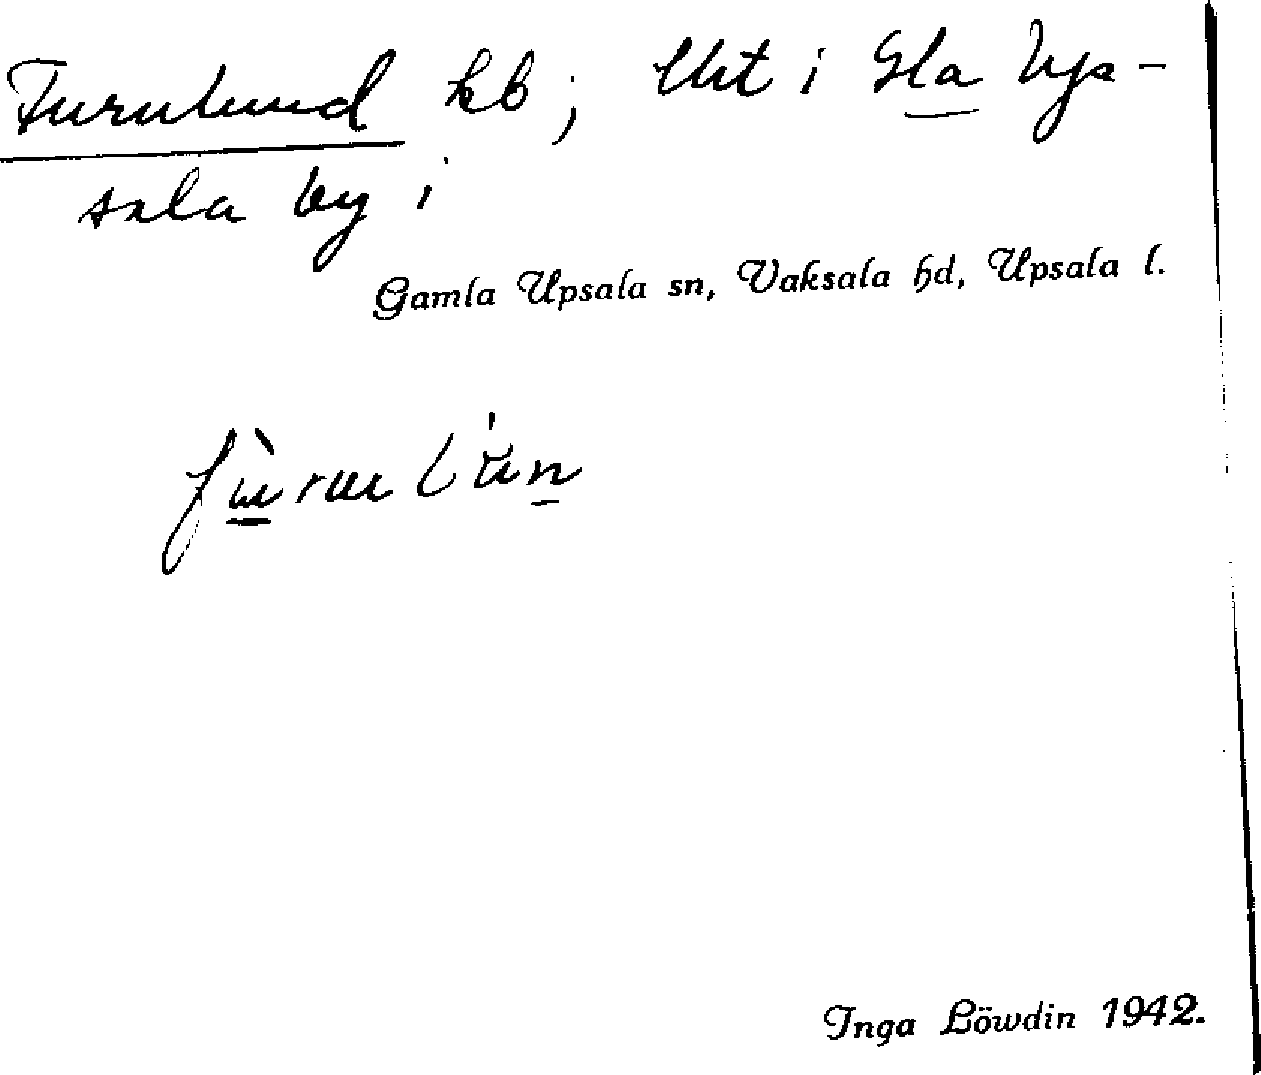 Furulund kb; tht i Gla Upp-
sala by i
Gamla Upsala sn, Vaksala hd, Upsala l.
Inga Löwdin 1942.